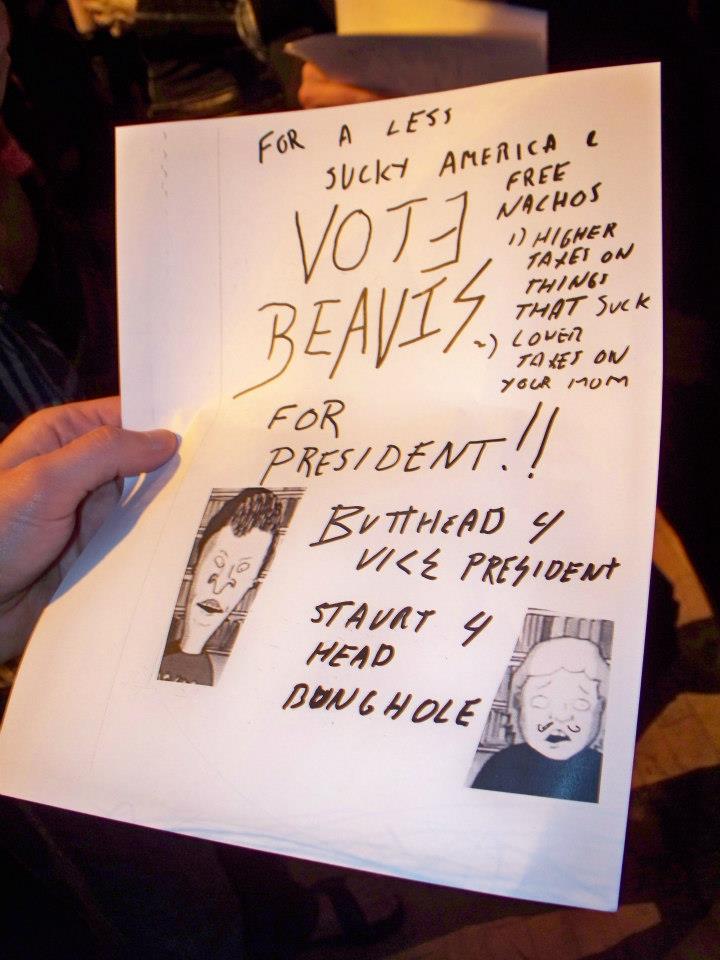 FOR A LESS
SUCKY AMERICA &
FREE
NACHOS
VOTE
BEAVIS
1) HIGHER
TAXES ON
THINGS
THAT SUCK
2) LOWER
TAXES ON
YOUR MOM
FOR
PRESIDENT!!
BUTTHEAD 4
VICE PRESIDENT
STAURT 4
HEAD
BUNGHOLE